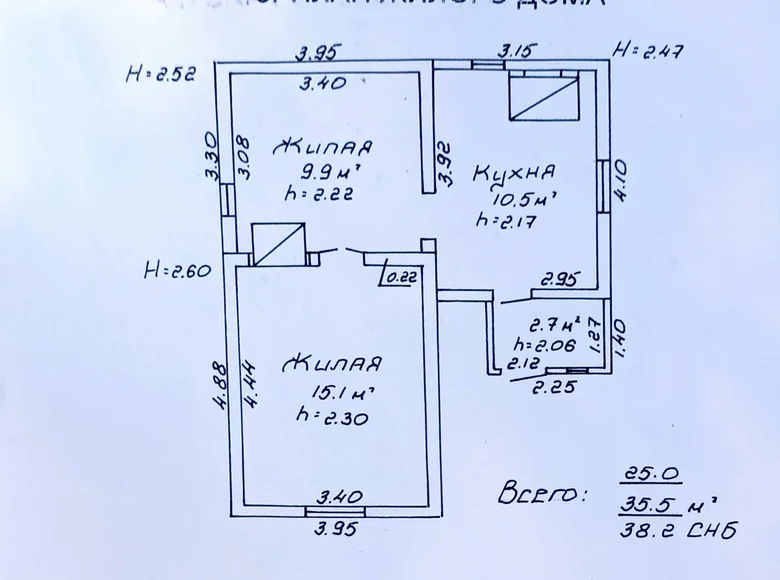 ПЛАН ЖИЛОГО ДОМА
3.95
3.15
H=2.47
H=2.52
3.40
3.30
3.08
Жилая
9.9 м²
h=2.22
3.92
Кухня
10.5 м²
h=2.17
4.10
H=2.60
0.22
2.95
2.7 м²
h=2.06
2.12
1.27
1.40
2.25
4.88
4.44
Жилая
15.1 м²
h=2.30
3.40
3.95
Всего:
25.0
35.5 м²
38.2 СНБ